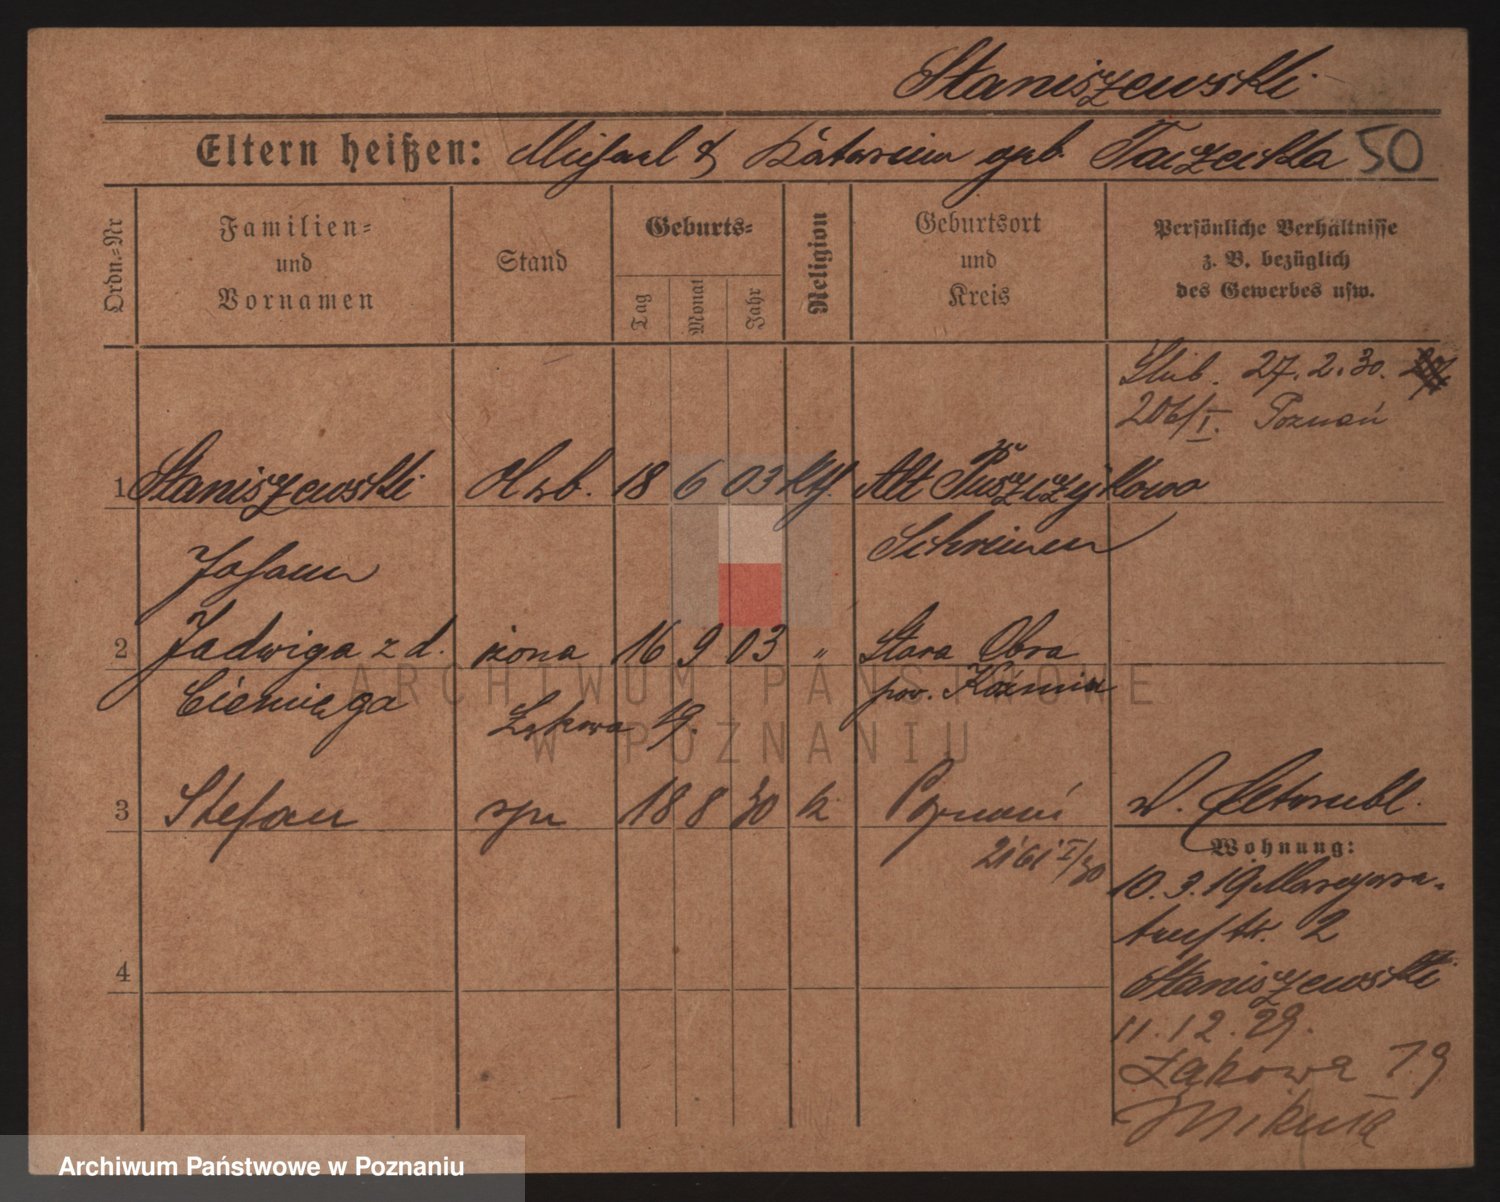 Staniszewski
Eltern heißen: Michael & Katarina geb. Taczecka 50
Ordn.-Nr
Familien-
und
Vornamen
Stand
Geburts-
Tag
Monat
Jahr
Religion
Geburtsort
und
Kreis
Persönliche Verhältnisse
z. B. bezüglich
des Gewerbes usw.
Ślub. 27.2.30.
206/I. Poznań
1 Staniszewski 18 6 03 kth. Alt Puszczykowo
Johann Schrimm
2 Jadwiga z d. żona 16 9 03 " Stara Obra
Ciemięga pow. Koźmin
Łąkowa 19.
3 Stefan syn 18 8 30 k. Poznań
2161 I/30
Wohnung:
10.3.19 Margare-
tenstr. 2
Staniszewski
11.12.29.
Łąkowa 19
Mikuła
4
ARCHIWUM PAŃSTWOWE
W POZNANIU
Archiwum Państwowe w Poznaniu